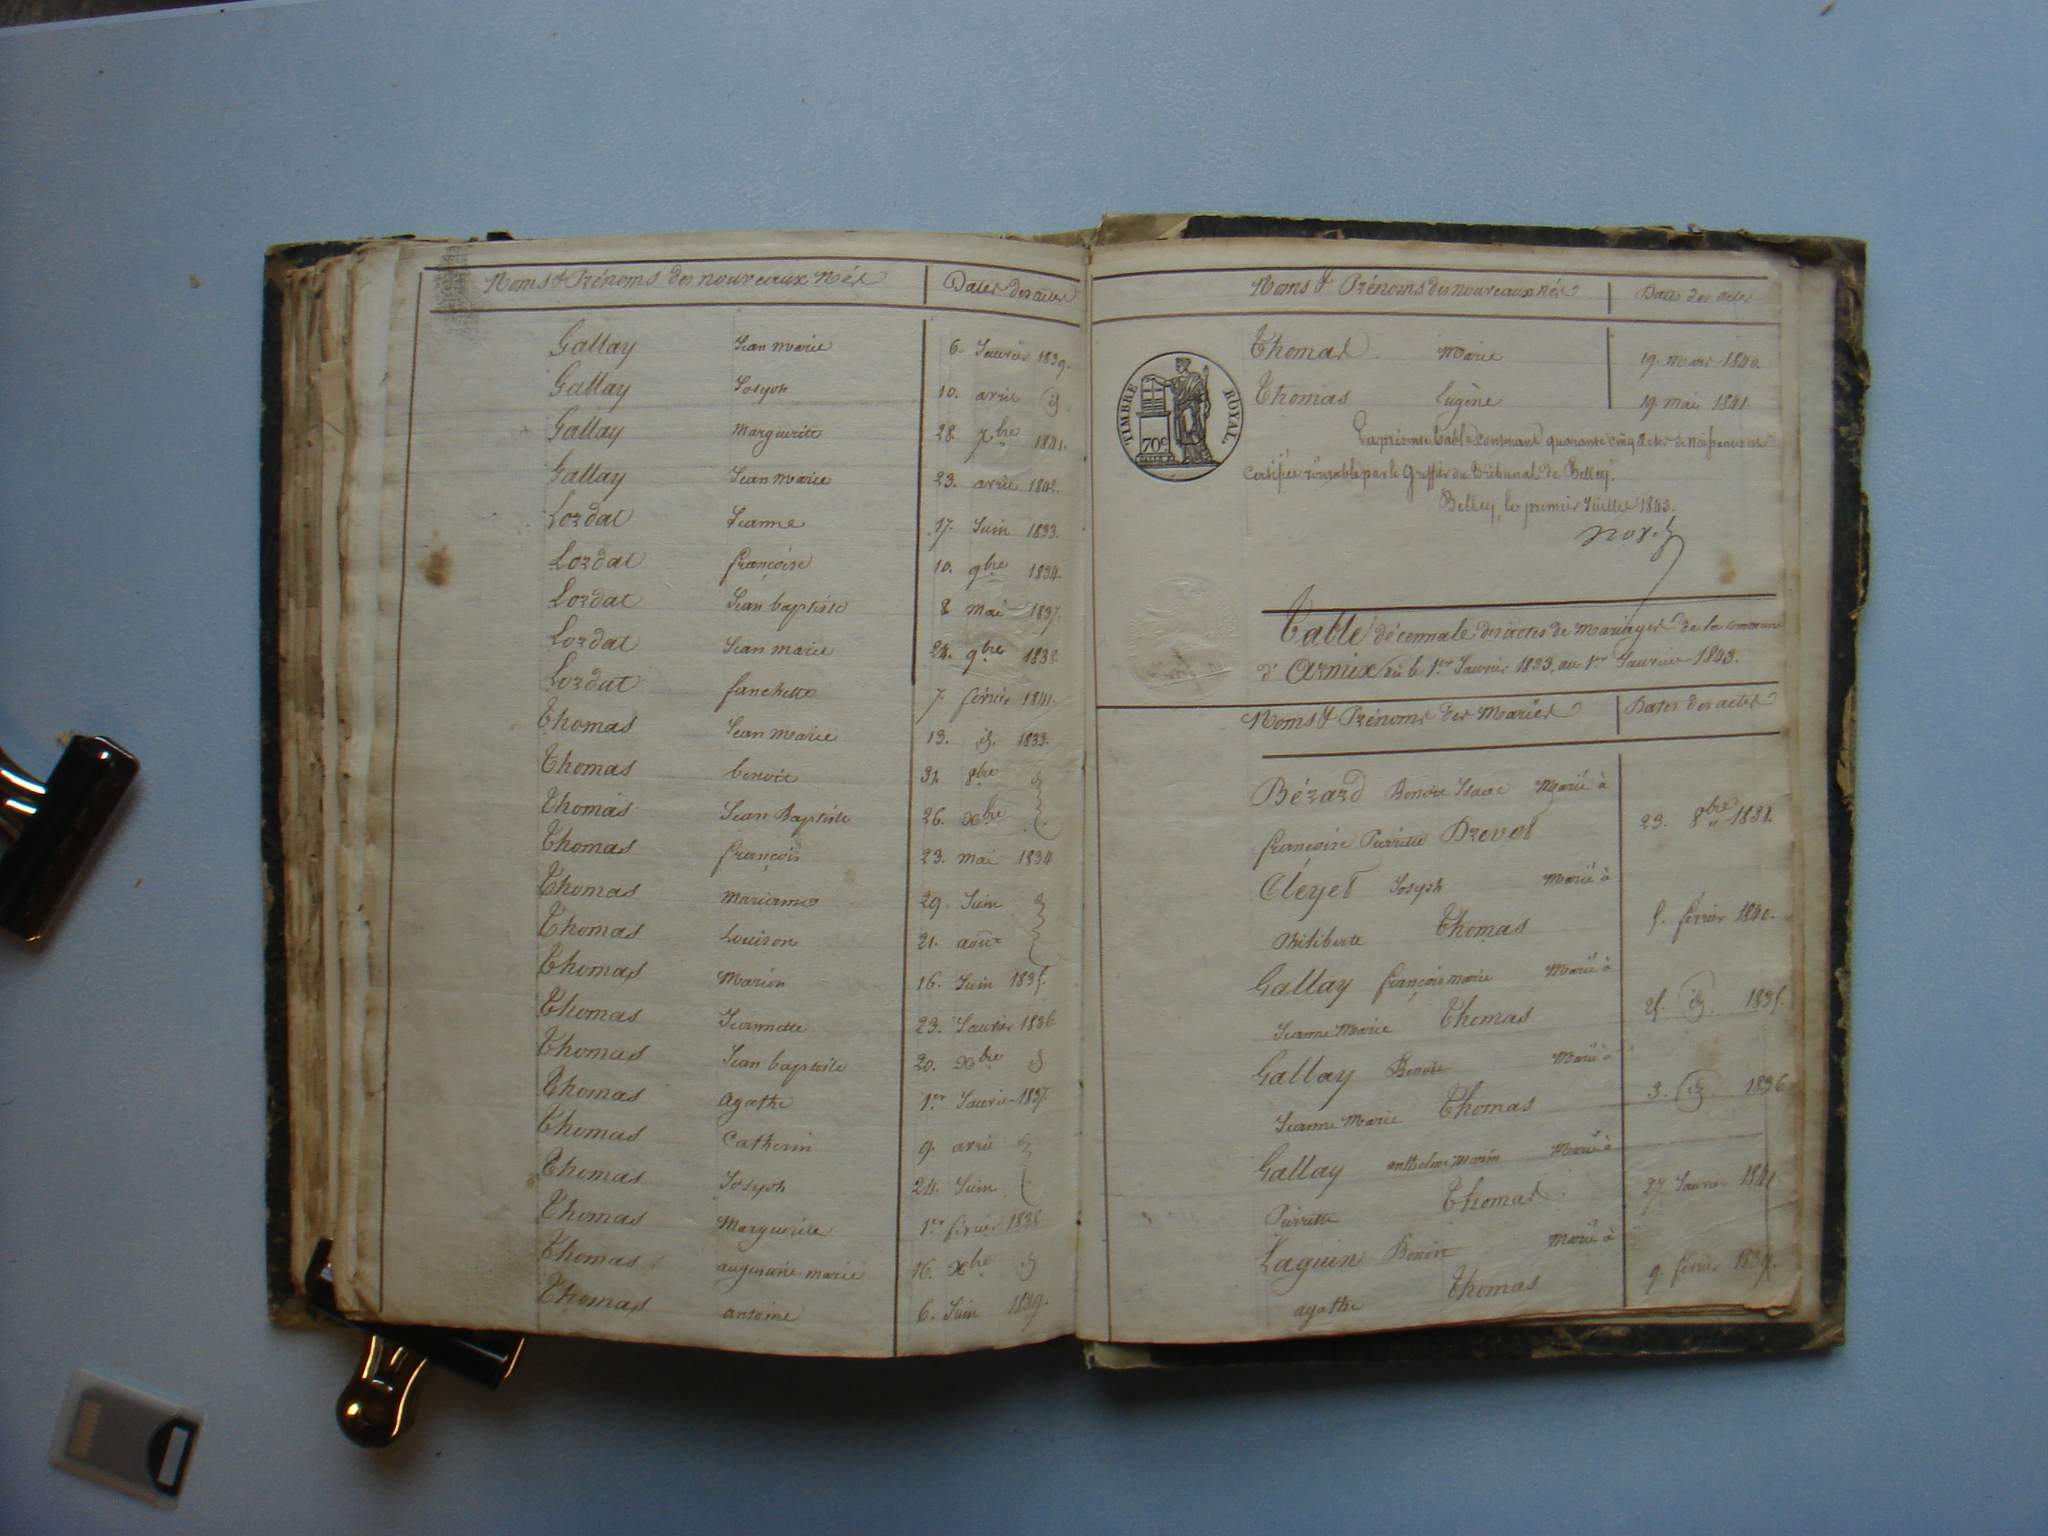 Noms & Prénoms des nouveaux Nés Dates des actes
Gallay Jean marie 6. Janvier 1839.
Gallay Joseph 10. avril id.
Gallay Marguerite 28 7bre 1841.
Gallay Jean Marie 23. avril 1842.
Lordat Jeanne 17. Juin 1833.
Lordat françoise 10. 9bre 1834.
Lordat Jean baptiste 8 mai 1837.
Lordat Jean marie 24. 9bre 1838.
Lordat fanchette 7. février 1841.
Thomas Jean marie 13. id. 1833.
Thomas benoit 31. 8bre id
Thomas Jean Baptiste 26. Xbre
Thomas françois 23. mai 1834
Thomas marianne 29. Juin id
Thomas Louison 21. août
Thomas Marion 16. Juin 1835.
Thomas Jeannette 23. Janvier 1836
Thomas Jean baptiste 20. Xbre id
Thomas agathe 1er. Janvier 1837.
Thomas Catherin 9. avril id
Thomas Joseph 24. Juin
Thomas Marguerite 1er février 1838
Thomas augustine marie 16. Xbre id
Thomas antoine 6. Juin 1839.
Noms & Prénoms des nouveaux nés Dates des actes
TIMBRE ROYAL.
70c
Thomas Marie 19. Mars 1840.
Thomas Eugène 19. mai 1841.
La présente table contenant quarante cinq actes de naissances est
Certifiée véritable par le Greffier du tribunal de Belley.
Belley, le premier Juillet 1843.
Table décennale des actes de Mariages de la commune
d'Armix du 1er. Janvier 1833. au 1er Janvier 1843.
Noms & Prénoms des Mariés Dates des actes
Bérard Benoit Isaac Marié à
françoise Pierrette Drevet 23. 8bre 1838.
Cleyet Joseph Marié à
Philiberte Thomas 5. février 1840.
Gallay françois marie Marié à
Jeanne Marie Thomas 25. id. 1835.
Gallay Benoit Marié à
Jeanne Marie Thomas 3. id. 1836
Gallay anthelme Marin Marié à
Pierrette Thomas 27. Janvier 1841
Laguin Benoit Marié à
agathe Thomas 9. février 1839.